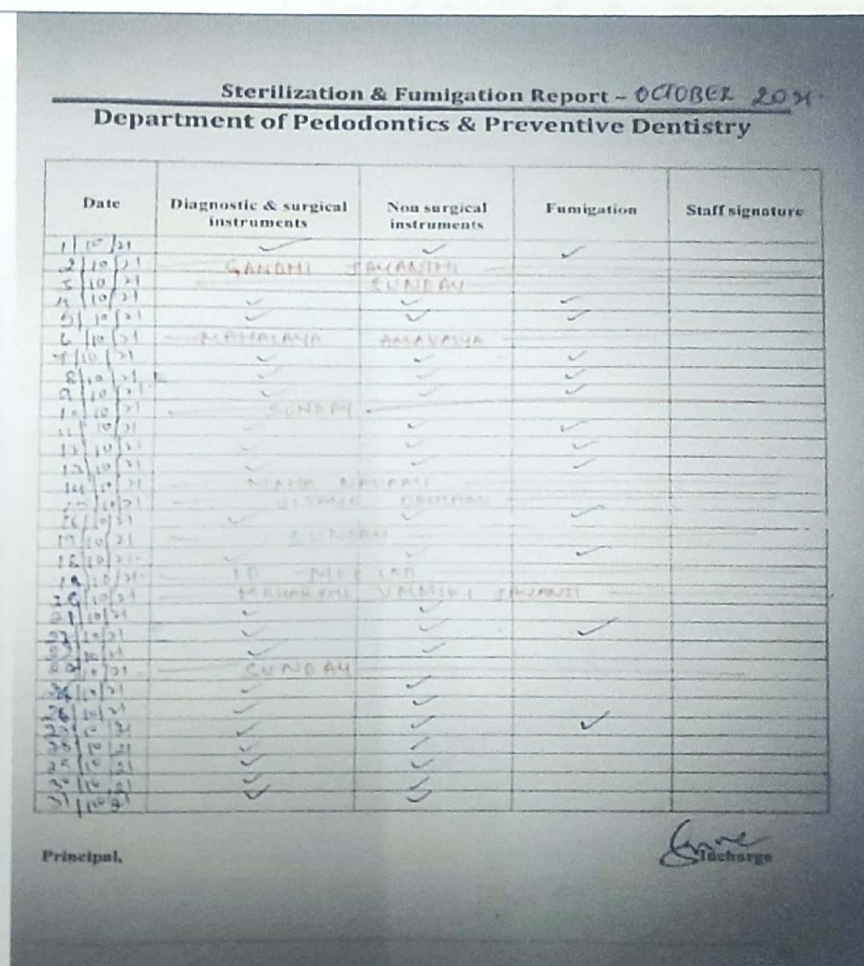 Sterilization & Fumigation Report – OCTOBER 2021
Department of Pedodontics & Preventive Dentistry
Date Diagnostic & surgical instruments Non surgical instruments Fumigation Staff signature
1/10/21 ✓ ✓ ✓
2/10/21 GANDHI JAYANTHI
3/10/21 SUNDAY
4/10/21 ✓ ✓ ✓
5/10/21 ✓ ✓ ✓
6/10/21 MAHALAYA AMAVASYA
7/10/21 ✓ ✓ ✓
8/10/21 ✓ ✓ ✓
9/10/21 ✓ ✓ ✓
10/10/21 SUNDAY
11/10/21 ✓ ✓ ✓
12/10/21 ✓ ✓ ✓
13/10/21 ✓ ✓ ✓
14/10/21 MAHA NAVAMI
15/10/21
16/10/21 ✓ ✓ ✓
17/10/21 SUNDAY
18/10/21 ✓ ✓ ✓
19/10/21 ID MILAD
20/10/21 MAHARSHI VALMIKI JAYANTI
21/10/21 ✓ ✓
22/10/21 ✓ ✓ ✓
23/10/21 ✓ ✓
24/10/21 SUNDAY
25/10/21 ✓ ✓
26/10/21 ✓ ✓
27/10/21 ✓ ✓ ✓
28/10/21 ✓ ✓
29/10/21 ✓ ✓
30/10/21 ✓ ✓
31/10/21 ✓ ✓
Principal, Incharge